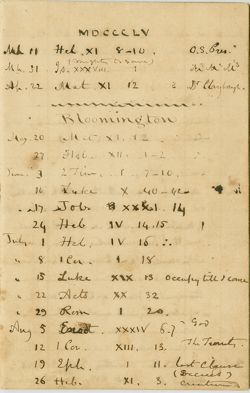 MDCCCLV
Mh. 11 Heb. XI 8-10. O.S. Pres.
Mh. 31 Is. XXXVIII 1
Ap. 22 Mat XI 12 2 Dr Claybaugh
Bloomington
May. 20 Mat XI. 12.
27 Heb. XII. 1-2
June. 3 2 Tim. 7-10.
10 Luke X 40-42
" 17 Job XXXI. 14
24 Heb IV 14.15
July 1 Heb. IV 16
" 8 1 Cor. 1 18
" 15 Luke XIX 13 Occupy till I come
" 22 Acts XX 32
" 29 Rom 1 20.
Aug 5 Exod. XXXIV 6.7 God
12 1 Cor. XIII. 13. The Trinity
19 Eph. 1 11. last Clause
26 Heb. XI. 3. (Decrees) Creation